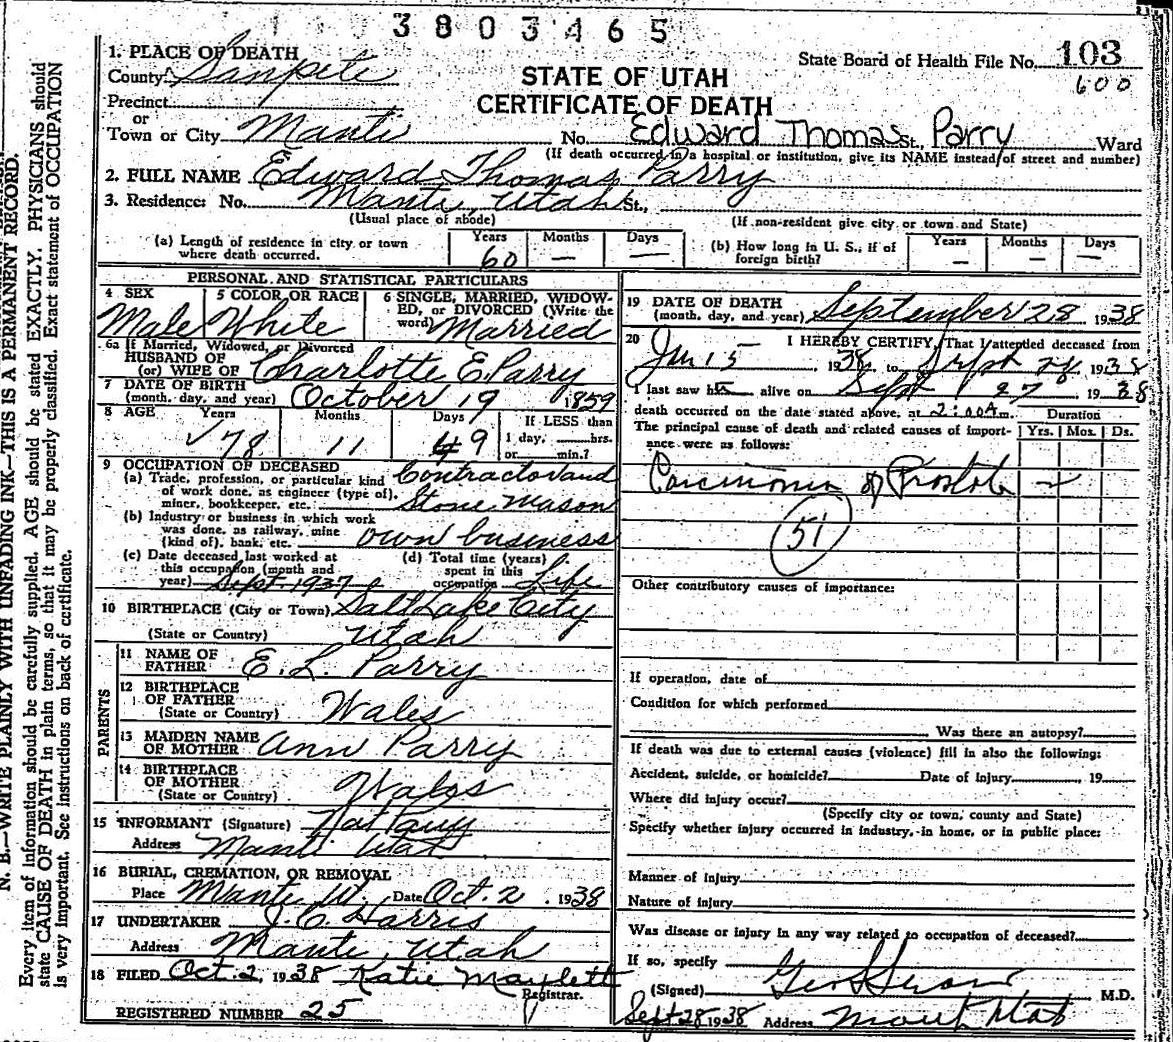 3803465
1. PLACE OF DEATH
County Sanpete
Precinct
or
Town or City Manti
STATE OF UTAH
CERTIFICATE OF DEATH
State Board of Health File No. 103
600
No. Edward Thomas St., Parry Ward
(If death occurred in a hospital or institution, give its NAME instead of street and number)
2. FULL NAME Edward Thomas Parry
3. Residence: No. Manti, Utah St.,
(Usual place of abode) (If non-resident give city or town and State)
(a) Length of residence in city or town where death occurred. Years 60 Months — Days —
(b) How long in U. S., if of foreign birth? Years — Months — Days —
PERSONAL AND STATISTICAL PARTICULARS
4 SEX Male
5 COLOR OR RACE White
6 SINGLE, MARRIED, WIDOWED, OR DIVORCED (Write the word) Married
6a If Married, Widowed, or Divorced
HUSBAND OF
(or) WIFE OF Charlotte E. Parry
7 DATE OF BIRTH
(month, day, and year) October 19 1859
8 AGE Years 78 Months 11 Days 9 If LESS than
1 day, hrs.
or min.?
9 OCCUPATION OF DECEASED
(a) Trade, profession, or particular kind of work done, as engineer (type of), miner, bookkeeper, etc. Contractor and Stone Mason
(b) Industry or business in which work was done, as railway, mine (kind of), bank, etc. own business
(c) Date deceased last worked at this occupation (month and year) Sept. 1937
(d) Total time (years) spent in this occupation Life
10 BIRTHPLACE (City or Town) Salt Lake City
(State or Country) Utah
PARENTS
11 NAME OF FATHER E. L. Parry
12 BIRTHPLACE OF FATHER
(State or Country) Wales
13 MAIDEN NAME OF MOTHER Ann Parry
14 BIRTHPLACE OF MOTHER
(State or Country) Wales
15 INFORMANT (Signature) Parry
Address Manti Utah
16 BURIAL, CREMATION, OR REMOVAL
Place Manti Ut. Date Oct. 2, 1938
17 UNDERTAKER J. C. Harris
Address Manti, Utah
18 FILED Oct. 2, 1938 Katie Maylett
Registrar.
REGISTERED NUMBER 25
19 DATE OF DEATH
(month, day, and year) September 28 1938
20 I HEREBY CERTIFY, That I attended deceased from
Jun 15, 1938, to Sept 28 1938
I last saw alive on Sept 27 1938
death occurred on the date stated above, at 2:00 A m. Duration
The principal cause of death and related causes of importance were as follows: Yrs. Mos. Ds.
Carcinoma of Prostate
51
Other contributory causes of importance:
If operation, date of
Condition for which performed
Was there an autopsy?
If death was due to external causes (violence) fill in also the following:
Accident, suicide, or homicide? Date of injury , 19
Where did injury occur?
(Specify city or town, county and State)
Specify whether injury occurred in industry, in home, or in public place:
Manner of injury
Nature of injury
Was disease or injury in any way related to occupation of deceased?
If so, specify
(Signed) M.D.
Sept 28 1938 Address Utah
N. B.—WRITE PLAINLY WITH UNFADING INK—THIS IS A PERMANENT RECORD.
Every item of information should be carefully supplied. AGE should be stated EXACTLY. PHYSICIANS should
state CAUSE OF DEATH in plain terms, so that it may be properly classified. Exact statement of OCCUPATION
is very important. See instructions on back of certificate.